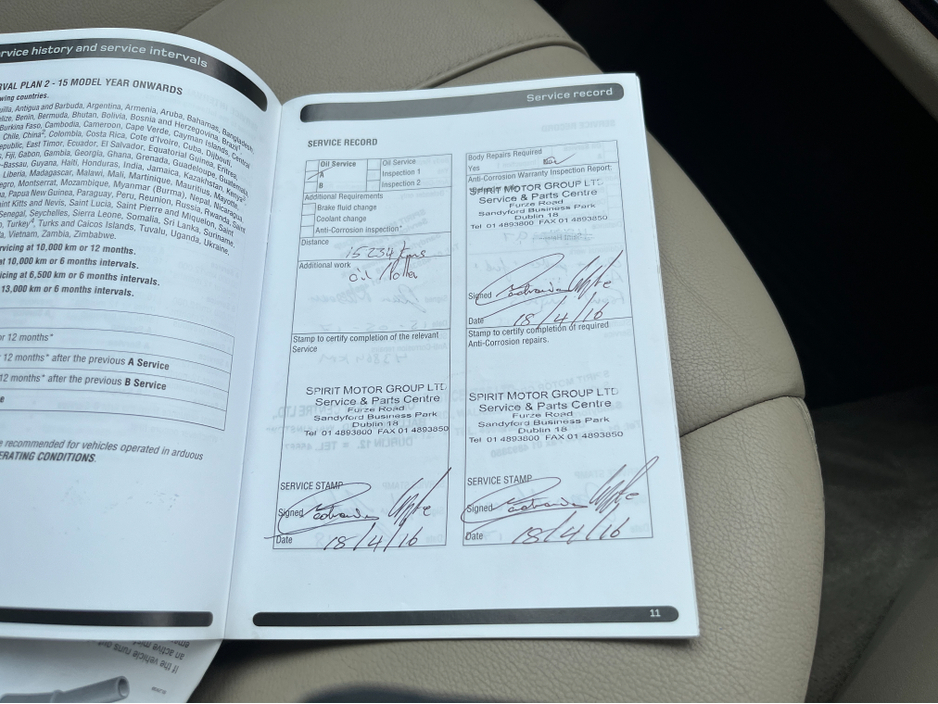 service history and service intervals
RVAL PLAN 2 - 15 MODEL YEAR ONWARDS
wing countries.
uilla, Antigua and Barbuda, Argentina, Armenia, Aruba, Bahamas, Bangladesh,
elize, Benin, Bermuda, Bhutan, Bolivia, Bosnia and Herzegovina, Brazil
Burkina Faso, Cambodia, Cameroon, Cape Verde, Cayman Islands, Central
Chile, China², Colombia, Costa Rica, Cote d'Ivoire, Cuba, Djibouti,
epublic, East Timor, Ecuador, El Salvador, Equatorial Guinea, Eritrea,
Fiji, Gabon, Gambia, Georgia, Ghana, Grenada, Guadeloupe, Guatemala,
-Bassau, Guyana, Haiti, Honduras, India, Jamaica, Kazakhstan, Kenya²
Liberia, Madagascar, Malawi, Mali, Martinique, Mauritius, Mayotte,
egro, Montserrat, Mozambique, Myanmar (Burma), Nepal, Nicaragua,
Papua New Guinea, Paraguay, Peru, Reunion, Russia, Rwanda, Saint
aint Kitts and Nevis, Saint Lucia, Saint Pierre and Miquelon, Saint
Senegal, Seychelles, Sierra Leone, Somalia, Sri Lanka, Suriname,
Turkey⁴, Turks and Caicos Islands, Tuvalu, Uganda, Ukraine,
Vietnam, Zambia, Zimbabwe.
rvicing at 10,000 km or 12 months.
at 10,000 km or 6 months intervals.
icing at 6,500 km or 6 months intervals.
13,000 km or 6 months intervals.
r 12 months*
12 months* after the previous A Service
12 months* after the previous B Service
e
e recommended for vehicles operated in arduous
ERATING CONDITIONS.
Service record
SERVICE RECORD
Oil Service
A
B
Oil Service
Inspection 1
Inspection 2
Additional Requirements
Brake fluid change
Coolant change
Anti-Corrosion inspection*
Distance
15234 kms
Additional work
oil
Stamp to certify completion of the relevant
Service
SPIRIT MOTOR GROUP LTD
Service & Parts Centre
Furze Road
Sandyford Business Park
Dublin 18
Tel 01 4893800 FAX 01 4893850
SERVICE STAMP
Signed
Date
18/4/16
Body Repairs Required
Yes
No
Anti-Corrosion Warranty Inspection Report:
SPIRIT MOTOR GROUP LTD
Service & Parts Centre
Furze Road
Sandyford Business Park
Dublin 18
Tel 01 4893800 FAX 01 4893850
Signed
Date
18/4/16
Stamp to certify completion of required
Anti-Corrosion repairs.
SPIRIT MOTOR GROUP LTD
Service & Parts Centre
Furze Road
Sandyford Business Park
Dublin 18
Tel 01 4893800 FAX 01 4893850
SERVICE STAMP
Signed
Date
18/4/16
11
If the vehicle runs out
an active mis